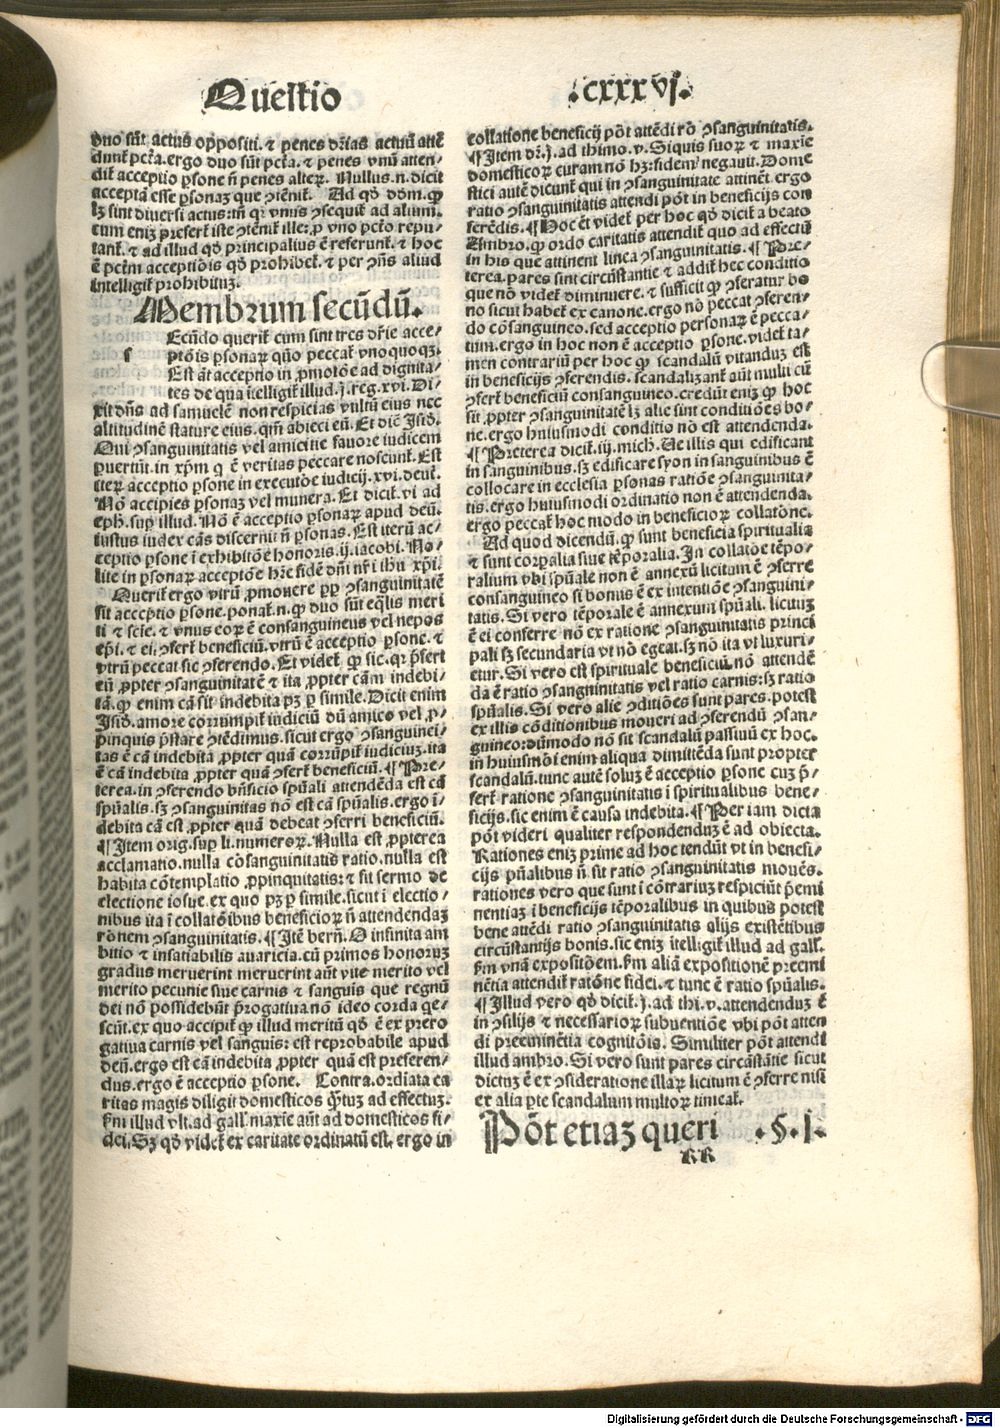 Questio
.cxxxvj.
duo sũt actus oppositi. ⁊ penes dr̃ias actuũ attẽ
dunt̃ pctã. ergo duo sũt pctã. ⁊ penes vnũ atten/
dit̃ acceptio ꝑsone ñ penes alterꝝ. Nullus .n. dicit
acceptã esse ꝑsonaꝫ que ꝯtẽnit̃. Ad qđ dõm. ꝙ
lꝫ sint diuersi actus: tñ qꝛ vnus ꝯsequit̃ ad alium.
cum eniꝫ prefert̃ iste ꝯtẽnit̃ ille: ꝓ vno pctõ repu-
tant̃. ⁊ ad illud qđ principalius ẽ referunt̃. ⁊ hoc
ẽ pctm̃ acceptiõis qđ prohibet̃. ⁊ per ꝯñs aliud
intelligit̃ prohibituꝫ.
Membrum secũdũ.
s Ecũdo querit̃ cum sint tres dr̃ie acce/
ptõis ꝑsonaꝝ quõ peccat̃ vno quoqꝫ.
Est ãt acceptio in ꝓmotõe ad dignita/
tes de qua ĩtelligit̃ illud .j. reg. xvi. Di/
xit dñs ad samuelẽ non respicias vultũ eius nec
altitudinẽ stature eius. qm̃ abieci eũ. Et dic̃ Isid.
Qui ꝯsanguinitatis vel amicitie fauore iudicem
ꝑuertũt. in xp̃m q̃ ẽ veritas peccare noscunt̃. Est
iterꝝ acceptio ꝑsone in executõe iudicij. xvi. deut̃.
Nõ accipies ꝑsonaꝫ vel munera. Et dicit̃ .vi. ad
eph. suꝑ illud. Nõ ẽ acceptio ꝑsonaꝝ apud deũ.
Iustus iudex cãs discernit ñ ꝑsonas. Est iterũ ac/
ceptio ꝑsone ĩ exhibitõe honoris. ij. iacobi. No-
lite in ꝑsonaꝝ acceptõe hr̃e fidẽ dñi nr̃i ihũ xp̃i.
Querit̃ ergo vtrũ ꝓmouere ꝓpꝑ ꝯsanguinitatẽ
sit acceptio ꝑsone. ponat̃ .n. ꝙ duo sũt eq̃lis meri
ti ⁊ scie. ⁊ vnus eoꝝ ẽ consanguineus vel nepos
ep̃i. ⁊ ei ꝯfert̃ beneficiũ. vtrũ ẽ acceptio ꝑsone. ⁊
vtrũ peccat sic ꝯferendo. Et videt̃ ꝙ sic. qꝛ p̃fert
eũ ꝓpter ꝯsanguinitatẽ ⁊ ita ꝓpter cãm indebi/
tã. ꝙ enim cã sit indebita pꝫ ꝑ simile. Dicit enim
Isid. amore corrumpit̃ iudiciũ dũ amico vel ꝓ/
pinquis p̃stare ꝯtẽdimus. sicut ergo ꝯsanguinei/
tas ẽ cã indebita ꝓpter quã corrũpit̃ iudiciuꝫ. ita
ẽ cã indebita ꝓpter quã ꝯfert̃ beneficiũ. ¶ Pre/
terea. in ꝯferendo bñficio spũali attendẽda est cã
spũalis. sꝫ ꝯsanguinitas nõ est cã spũalis. ergo ĩ/
debita cã est ꝓpter quã debeat ꝯferri beneficiũ.
¶ Item orig. suꝑ li. numeroꝝ. Nulla est ꝓpterea
acclamatio. nulla cõsanguinitatis ratio. nulla est
habita cõtemplatio ꝓpinquitatis: ⁊ sit sermo de
electione iosue. ex quo pꝫ ꝑ simile. sicut ĩ electio-
nibus ita ĩ collatõibus beneficioꝝ ñ attendendaꝫ
rõnem ꝯsanguinitatis. ¶ Itẽ bern̄. O infinita am
bitio ⁊ insatiabilis auaricia. cũ primos honoruꝫ
gradus meruerint meruerint aũt vite merito vel
merito pecunie siue carnis ⁊ sanguis que regnũ
dei nõ possidebũt p̃rogatiua nõ ideo corda qe-
scũt. ex quo accipit̃ ꝙ illud meritũ qđ ẽ ex prero
gatiua carnis vel sanguis: est reprobabile apud
deũ. ergo est cã indebita ꝓpter quã est preferen/
dus. ergo ẽ acceptio ꝑsone. Contra. ordĩata ca
ritas magis diligit domesticos q̃tuꝫ ad effectuꝫ.
ẜm illud vlt̃. ad gall. maxie aũt ad domesticos fi/
dei. Sꝫ qđ videt̃ ex caritate ordinatũ est. ergo in
collatione beneficij põt attẽdi rõ ꝯsanguinitatis.
¶ Item dr̃ .j. ad thimo. v. Siquis suoꝝ ⁊ maxie
domesticoꝝ curam nõ hꝫ: fidem negauit. Dome
stici autẽ dicunt̃ qui in ꝯsanguinitate attinẽt. ergo
ratio ꝯsanguinitatis attendi põt in beneficijs con
ferẽdis. ¶ Hoc ẽt videt̃ per hoc qđ dicit̃ a beato
Ambro. ꝙ ordo caritatis attendit̃ quo ad effectũ
in his que attinent linea ꝯsanguinitatis. ¶ Pre/
terea. pares sint circũstantie ⁊ addit̃ hec conditio
que nõ videt̃ diminuere. ⁊ sufficit ꝙ ꝯferatur bo
no sicut habet̃ ex canone. ergo nõ peccat ꝯferen-
do cõsanguineo. sed acceptio personaꝝ ẽ pecca-
tum. ergo in hoc non ẽ acceptio ꝑsone. videt̃ ta-
men contrariũ per hoc ꝙ scandalũ vitanduꝫ est
in beneficijs ꝯferendis. scandalizant̃ aũt multi cũ
ꝯfert̃ beneficiũ consanguineo. credũt eniꝫ ꝙ hoc
sit ꝓpter ꝯsanguinitatẽ lꝫ alie sint conditiões bo-
ne. ergo huiusmodi conditio nõ est attendenda.
¶ Preterea dicit̃ .iij. mich. Ue illis qui edificant
in sanguinibus. sꝫ edificare syon in sanguinibus ẽ
collocare in ecclesia ꝑsonas ratiõe ꝯsanguinita-
tis. ergo huiusmodi ordinatio non ẽ attendenda.
ergo peccat̃ hoc modo in beneficioꝝ collatõne.
Ad quod dicendũ. ꝙ sunt beneficia spiritualia
⁊ sunt corꝑalia siue tẽporalia. In collatõe tẽpo-
ralium vbi spũale non ẽ annexũ licitum ẽ ꝯferre
consanguineo si bonus ẽ ex intentiõe ꝯsanguini-
tatis. Si vero tẽporale ẽ annexum spũali. licituꝫ
ẽ ei conferre nõ ex ratione ꝯsanguinitatis princi
pali sꝫ secundaria vt nõ egeat. sꝫ nõ ita vt luxuri-
etur. Si vero est spirituale beneficiũ. nõ attendẽ
da ẽ ratio ꝯsanguinitatis vel ratio carnis: sꝫ ratio
spũalis. Si vero alie ꝯditiões sunt pares. potest
ex illis cõditionibus moueri ad ꝯferendũ ꝯsan/
guineo: dũmodo nõ sit scandalũ passiuũ ex hoc.
in huiusmõi enim aliqua dimittẽda sunt propter
scandalũ. tunc autẽ soluꝫ ẽ acceptio ꝑsone cuꝫ p̃-
fert̃ ratione ꝯsanguinitatis ĩ spiritualibus bene/
ficijs. sic enim ẽ causa indebita. ¶ Per iam dicta
põt videri qualiter respondenduꝫ ẽ ad obiecta.
Rationes eniꝫ prime ad hoc tendũt vt in benefi-
cijs spũalibus ñ sit ratio ꝯsanguinitatis mouẽs.
rationes vero que sunt ĩ cõtrariuꝫ respiciũt p̃emi
nentiaꝫ ĩ beneficijs tẽporalibus in quibus potest
bene attẽdi ratio ꝯsanguinitatis alijs existẽtibus
circũstantijs bonis. sic eniꝫ ĩtelligit̃ illud ad gall.
ẜm vnã expositõem. ẜm aliã expositionẽ preemi
nẽtia attendit̃ ratõne fidei. ⁊ tunc ẽ ratio spũalis.
¶ Illud vero qđ dicit̃ .j. ad thi. v. attendenduꝫ ẽ
in ꝯsilijs ⁊ necessarioꝝ subuentiõe vbi põt atten
di preeminẽtia cognitõis. Similiter põt attendi
illud ambro. Si vero sunt pares circũstãtie sicut
dictuꝫ ẽ ex ꝯsideratione illaꝝ licitum ẽ ꝯferre nisi
ex alia ꝑte scandalum multoꝝ timeat̃.
Põt etiaꝫ queri .§.j.
KK
Digitalisierung gefördert durch die Deutsche Forschungsgemeinschaft - DFG